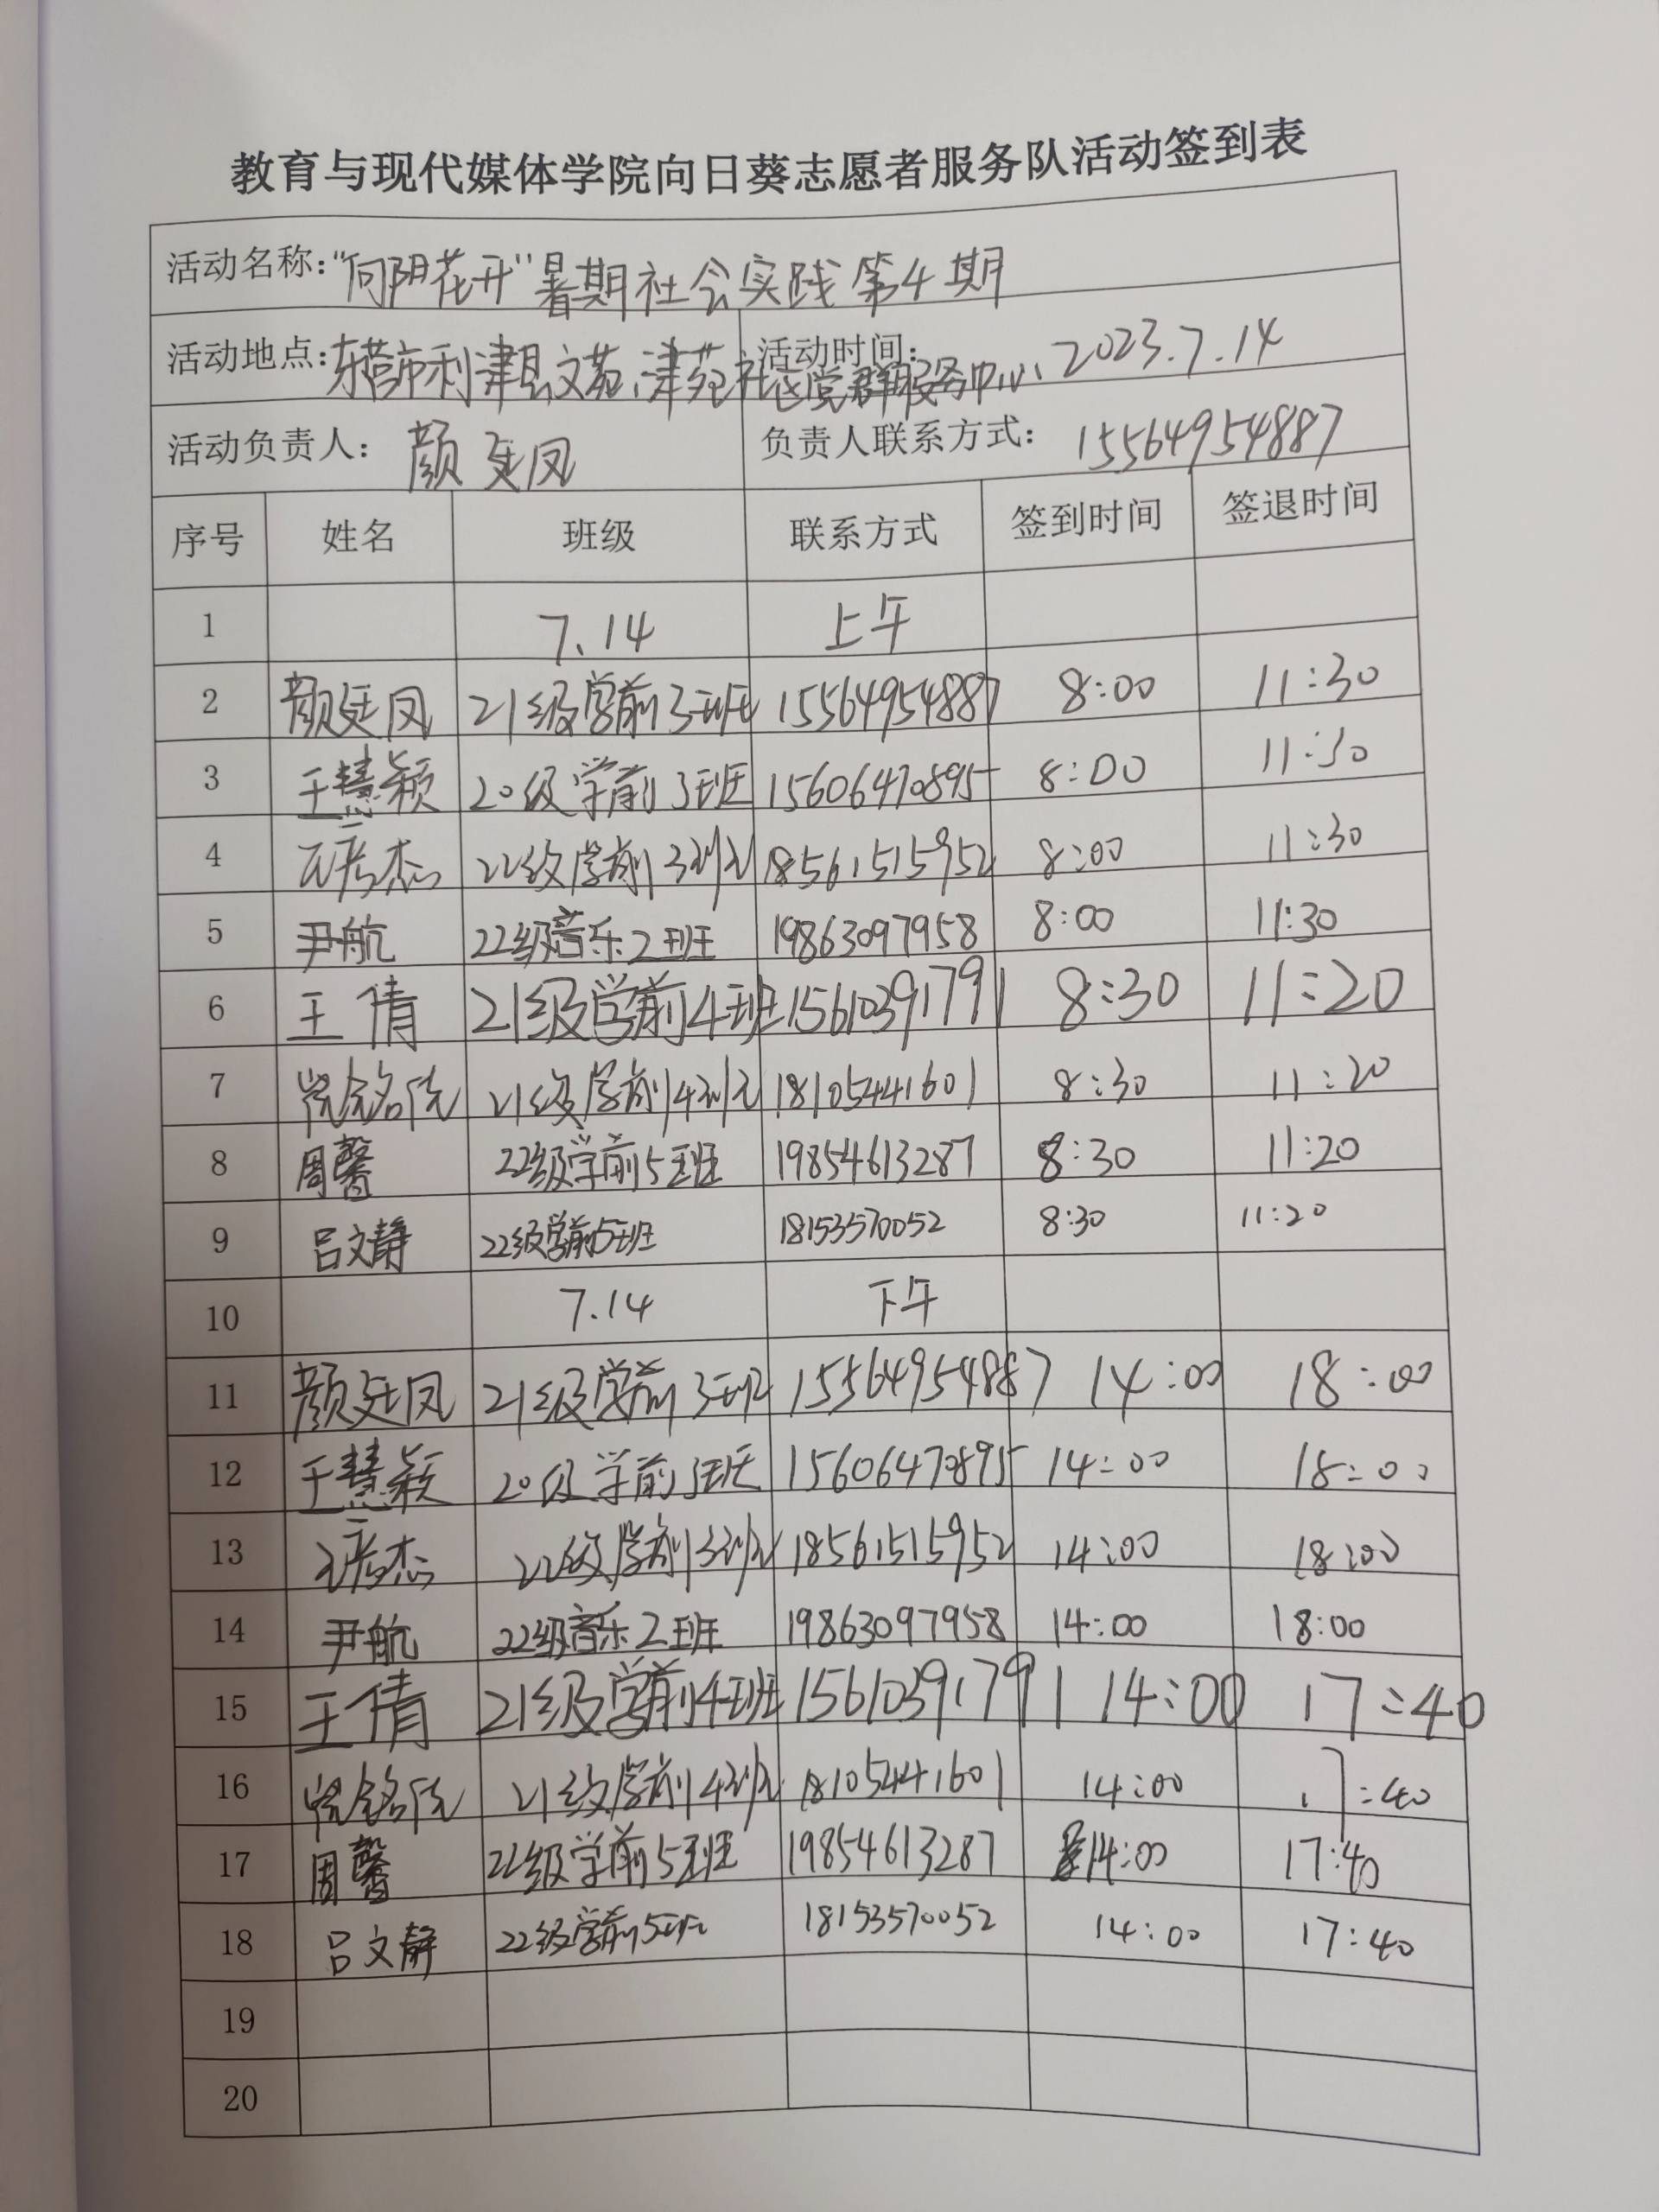 教育与现代媒体学院向日葵志愿者服务队活动签到表
活动名称:"向阳花开"暑期社会实践第4期
活动地点:东营市利津县文苑、津苑社区党群服务中心 活动时间: 2023.7.14
活动负责人: 颜廷凤 负责人联系方式: 15564954887
序号 姓名 班级 联系方式 签到时间 签退时间
1 7.14 上午
2 颜廷凤 21级学前3班 15564954887 8:00 11:30
3 王慧颖 20级学前3班 15606470895 8:00 11:30
4 22级学前3班 18561515952 8:00 11:30
5 尹航 22级音乐2班 19863097958 8:00 11:30
6 王倩 21级学前4班 15610391791 8:30 11:20
7 21级学前4班 18105441601 8:30 11:20
8 周馨 22级学前5班 19854613287 8:30 11:20
9 吕文静 22级学前5班 18153570052 8:30 11:20
10 7.14 下午
11 颜廷凤 21级学前3班 15564954887 14:00 18:00
12 王慧颖 20级学前3班 15606470895 14:00 18:00
13 22级学前3班 18561515952 14:00 18:00
14 尹航 22级音乐2班 19863097958 14:00 18:00
15 王倩 21级学前4班 15610391791 14:00 17:40
16 21级学前4班 18105441601 14:00 17:40
17 周馨 22级学前5班 19854613287 14:00 17:40
18 吕文静 22级学前5班 18153570052 14:00 17:40
19
20